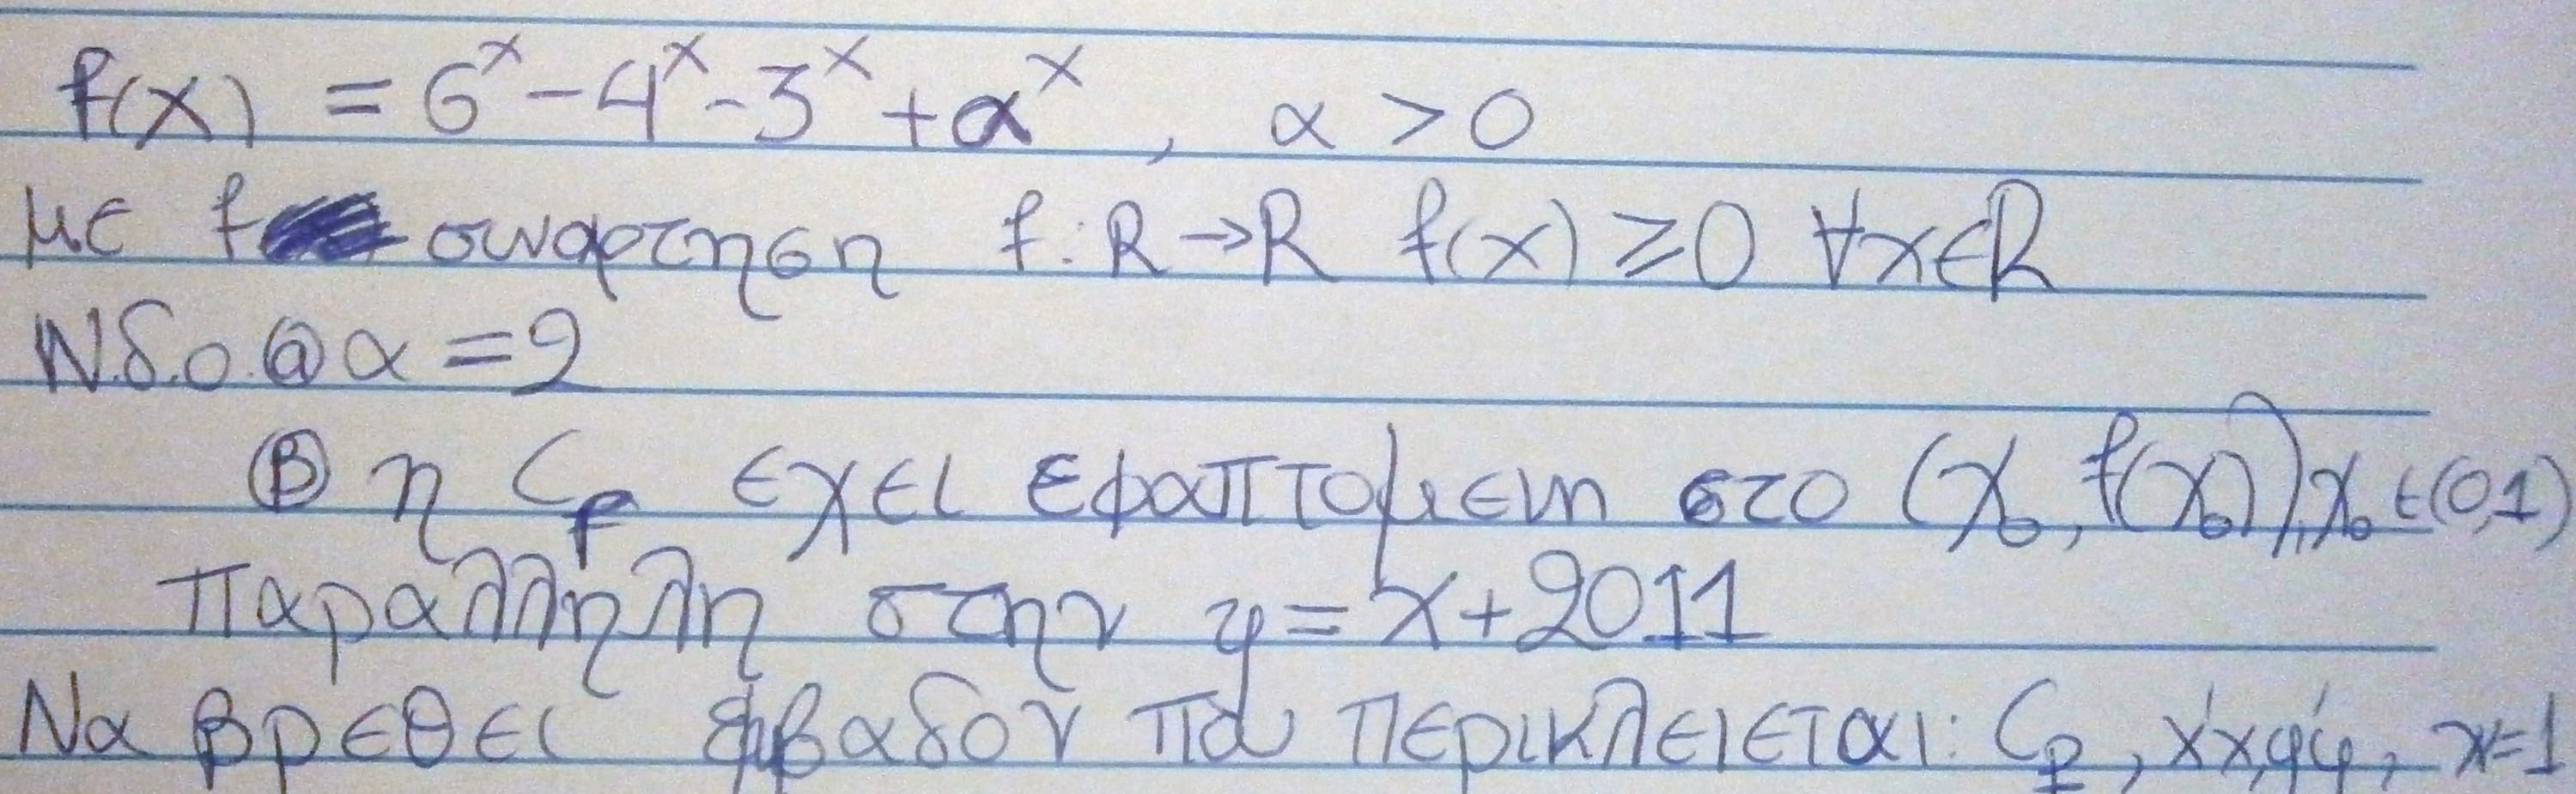 f(x) = 6^x - 4^x - 3^x + α^x , α > 0
με f συναρτηση f: R → R f(x) ≥ 0 ∀x∈R
Ν.δ.ο. ⓐ α = 2
Ⓑ η C_f εχει εφαπτομενη στο (x₀, f(x₀)), x₀ ∈ (0,1)
παραλληλη στην y = x + 2011
Να βρεθει εμβαδον που περικλειεται: C_f, x'x, y'y, x=1